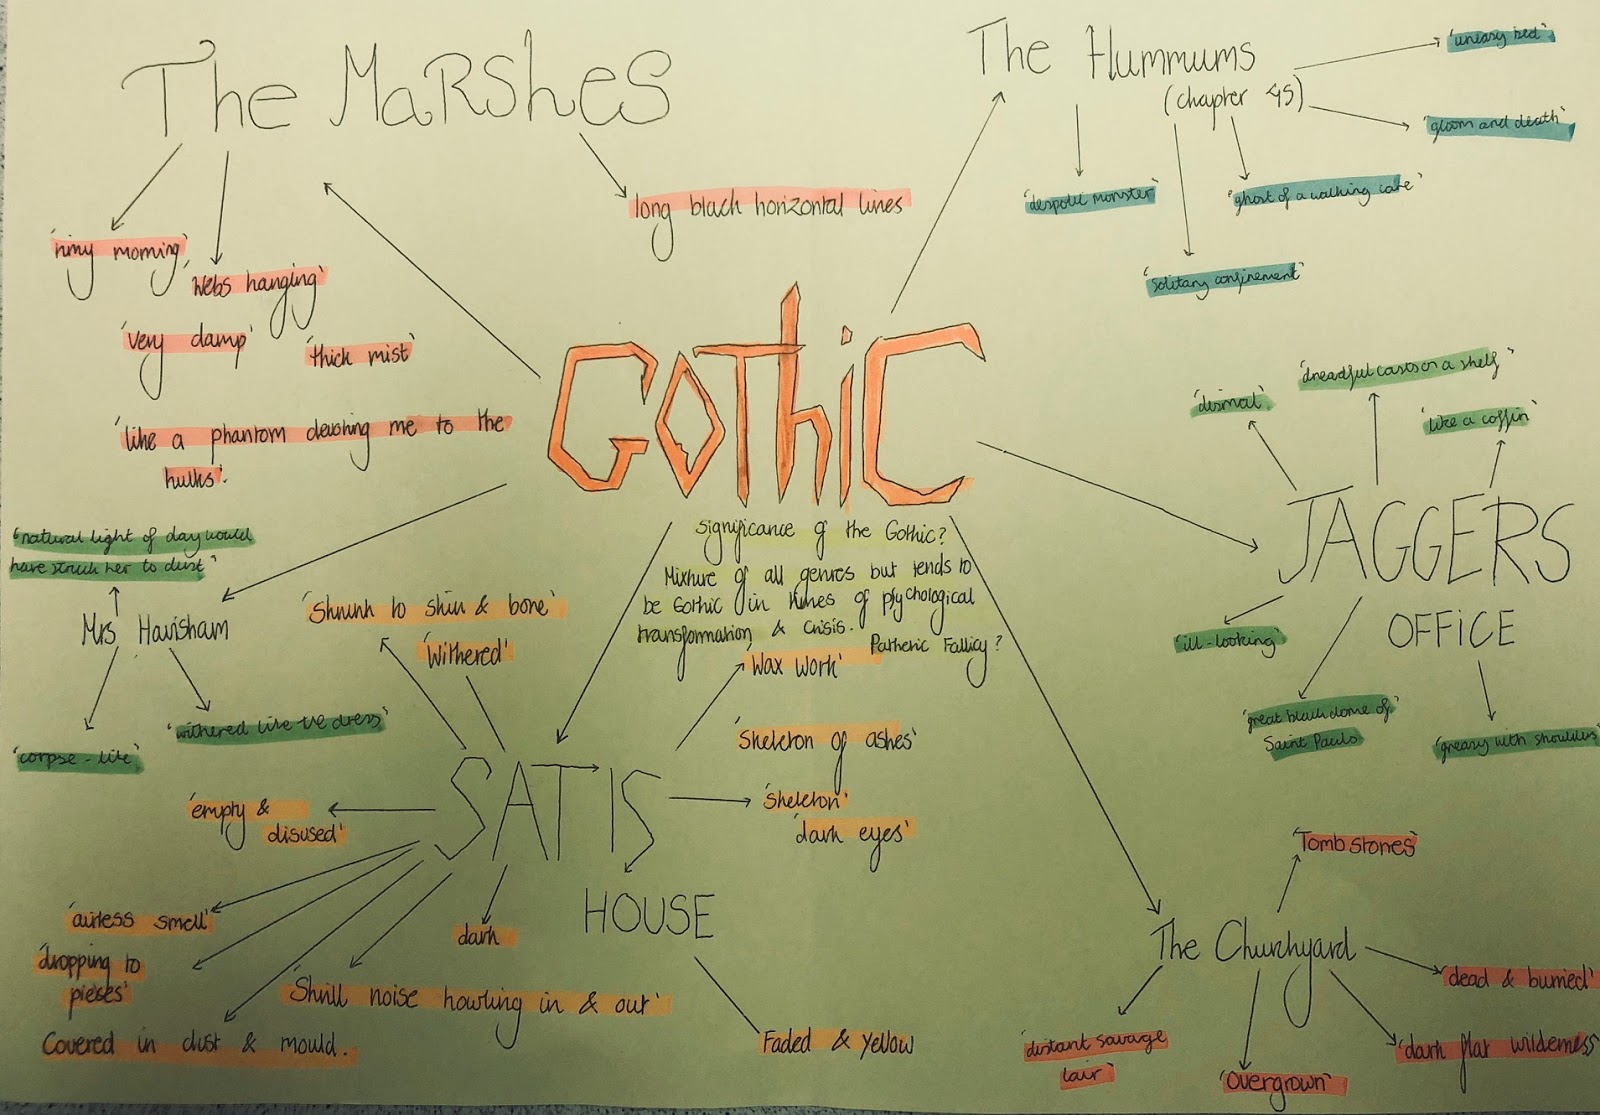 The Marshes
'rimy morning'
'Webs hanging'
'very damp'
'thick mist'
'like a phantom devoting me to the
hulks'.
long black horizontal lines
The Hummums
(chapter 45)
'uneasy bed'
'gloom and death'
'despotic monster'
'ghost of a walking care'
'solitary confinement'
GOTHIC
Significance of the Gothic?
Mixture of all genres but tends to
be Gothic in times of psychological
transformation & crisis.
Pathetic Fallicy?
'dismal'
'dreadful casts on a shelf'
'like a coffin'
JAGGERS
OFFICE
'ill-looking'
'great black dome of
Saint Pauls
'greasy with shoulders
'natural light of day would
have struck her to dust'
Mrs Havisham
'corpse-like'
'withered like the dress'
'Shrunk to skin & bone'
'Withered'
'Wax work'
'Skeleton of ashes'
'Skeleton'
'dark eyes'
SATIS
HOUSE
'empty &
disused'
'airless smell'
'dropping to
pieses'
Covered in dust & mould.
'Shrill noise howling in & out'
dark
Faded & yellow
The Churchyard
'Tombstones'
'dead & burried'
'dark flat wilderness
'Overgrown'
'distant savage
lair'